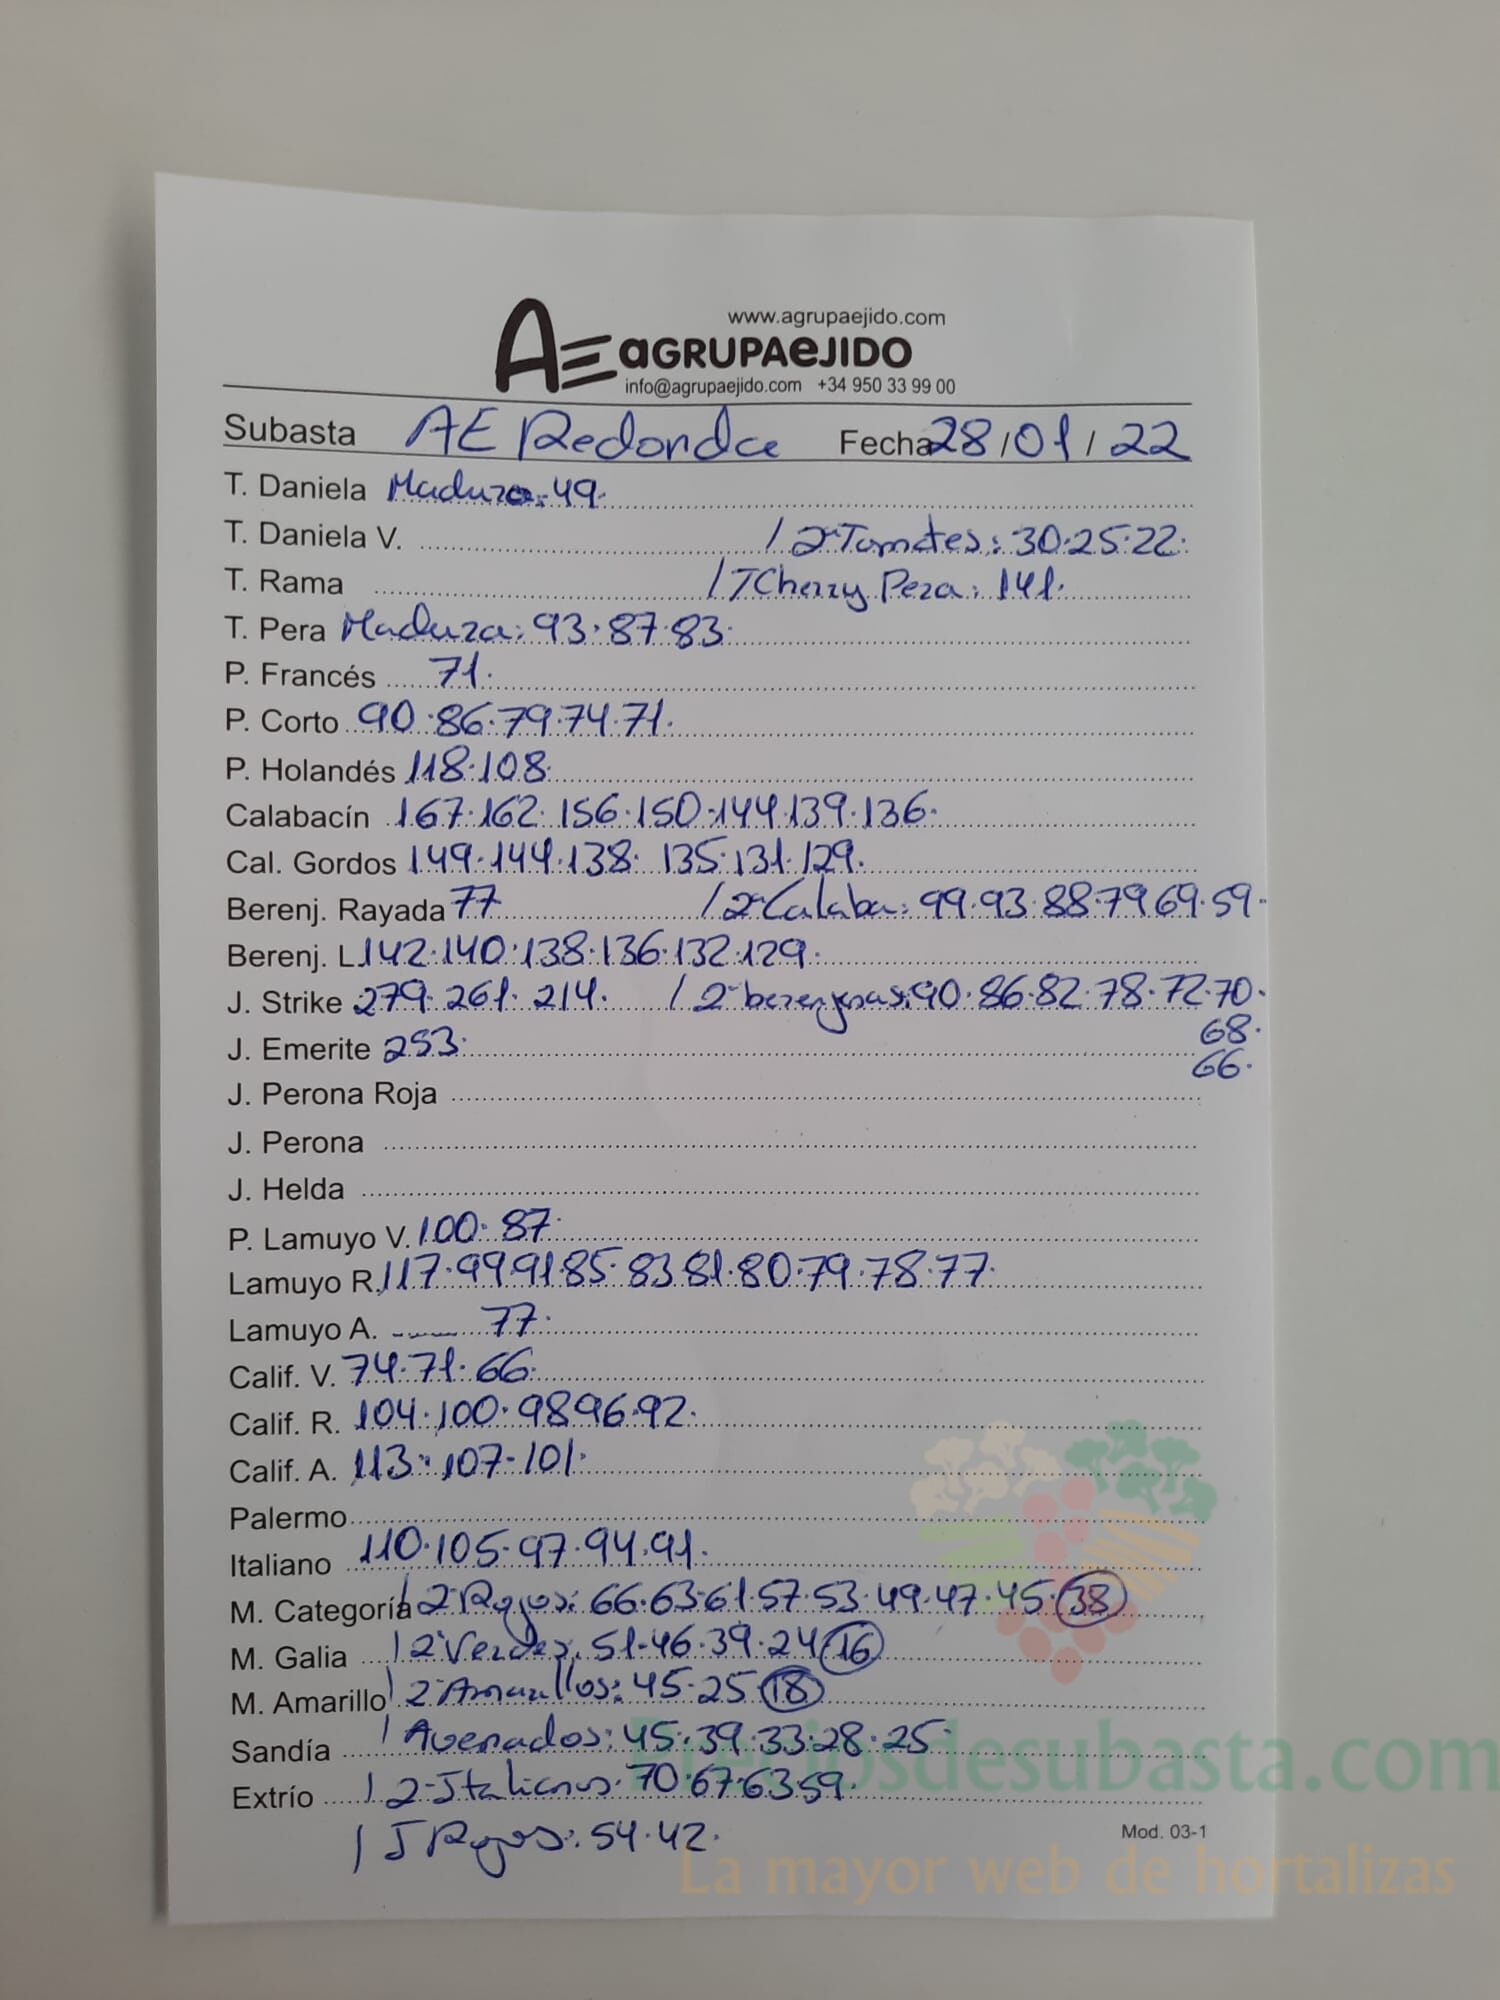 www.agrupaejido.com
AE aGRUPAeJIDO
info@agrupaejido.com +34 950 33 99 00
Subasta AE Redonda Fecha 28/01/22
T. Daniela Maduro: 49.
T. Daniela V. / 2ª Tomates: 30.25.22.
T. Rama / T Cherry Pera: 141.
T. Pera Madura: 93.87.83.
P. Francés 71.
P. Corto 90.86.79.74.71.
P. Holandés 118.108.
Calabacín 167.162.156.150.144.139.136.
Cal. Gordos 149.144.138.135.131.129.
Berenj. Rayada 77 / 2ª Calaba: 99.93.88.79.69.59.
Berenj. L 142.140.138.136.132.129.
J. Strike 279.261.214. / 2ª berenjenas: 90.86.82.78.72.70.
68.
J. Emerite 253.
66.
J. Perona Roja
J. Perona
J. Helda
P. Lamuyo V. 100.87.
Lamuyo R. 117.99.91.85.83.81.80.79.78.77.
Lamuyo A. 77.
Calif. V. 74.71.66.
Calif. R. 104.100.98.96.92.
Calif. A. 113.107.101.
Palermo
Italiano 110.105.97.94.91.
M. Categoría / 2ª Rojos: 66.63.61.57.53.49.47.45.38
M. Galia / 2ª Verdes: 51.46.39.24.16
M. Amarillo / 2ª Amarillos: 45.25.18
Sandía / Asenados: 45.39.33.28.25
Preciosdesubasta.com
Extrío / 2ª Italianos: 70.67.63.59.
/ J Rojos: 54.42.
Mod. 03-1
La mayor web de hortalizas